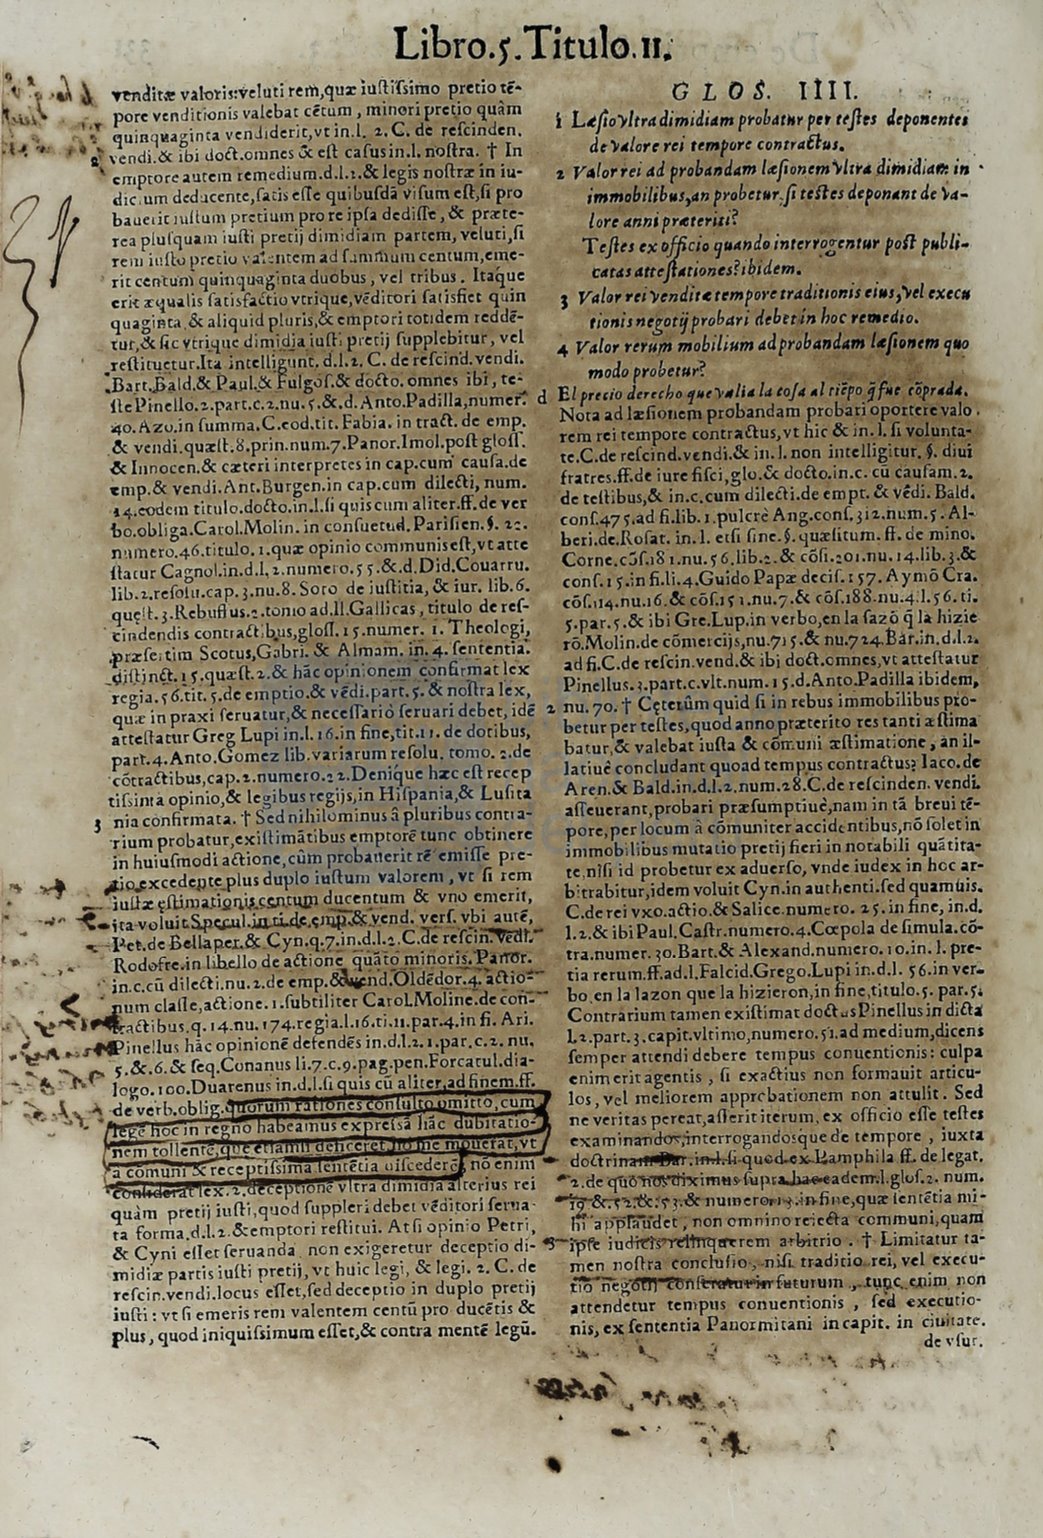 Libro.5.Titulo.II.
venditæ valoris:veluti rem,quæ iustissimo pretio tẽ-
pore venditionis valebat cẽtum, minori pretio quàm
quinquaginta vendiderit,vt in.l. 2.C. de rescinden.
vendi.& ibi doct.omnes & est casus in.l. nostra. † In
emptore autem remedium.d.l.2.& legis nostræ in iu-
dicium deducente,satis esse quibusdã visum est,si pro
bauerit iustum pretium pro re ipsa dedisse, & præte-
rea plusquam iusti pretij dimidiam partem, veluti,si
rem iusto pretio valentem ad summum centum,eme-
rit centum quinquaginta duobus, vel tribus. Itaque
erit æqualis satisfactio vtrique,vẽditori satisfiet quin
quaginta,& aliquid pluris,& emptori totidem reddẽ-
tur,& sic vtrique dimidia iusti pretij supplebitur, vel
restituetur.Ita intelligunt. d.l.2. C. de rescind.vendi.
Bart.Bald.& Paul.& Fulgos.& docto. omnes ibi, te-
ste Pinello.2.part.c.2.nu.5.&.d.Anto.Padilla,numer.
40.Azo.in summa.C.eod.tit.Fabia. in tract. de emp.
& vendi.quæst.8.prin.num.7.Panor.Imol.post gloss.
& Innocen.& cæteri interpretes in cap.cum causa.de
emp.& vendi.Ant.Burgen.in cap.cum dilecti, num.
14.eodem titulo.docto.in.l.si quis cum aliter.ff.de ver
bo.obliga.Carol.Molin. in consuetud.Parisien.§. 22.
numero.46.titulo.1.quæ opinio communis est,vt atte
statur Cagnol.in.d.l.2.numero.55.&.d.Did.Couarru.
lib.2.resolu.cap.3.nu.8. Soto de iustitia, & iur. lib.6.
quest.3.Rebuffus.2.tomo ad.ll.Gallicas, titulo de res-
cindendis contractibus,gloss.15.numer. 1. Theologi,
præsertim Scotus,Gabri. & Almam. in. 4. sententia.
distinct.15.quæst.2.& hãc opinionem confirmat lex
regia.56.tit.5.de emptio.& vẽdi.part.5.& nostra lex,
quæ in praxi seruatur,& necessariò seruari debet, idẽ
attestatur Greg Lupi in.l.16.in fine,tit.11. de dotibus,
part.4.Anto.Gomez lib.variarum resolu. tomo. 2.de
cõtractibus,cap.2.numero.22.Denique hæc est recep
tissima opinio,& legibus regijs,in Hispania,& Lusita
3 nia confirmata. † Sed nihilominus à pluribus contra-
rium probatur,existimãtibus emptorẽ tunc obtinere
in huiusmodi actione,cùm probauerit rẽ emisse pre-
tio excedente plus duplo iustum valorem, vt si rem
iustæ ęstimationis centum ducentum & vno emerit,
ita voluit Specul.in ti.de emp.& vend. vers. vbi autẽ,
Pet.de Bellaper.& Cyn.q.7.in.d.l.2.C.de rescin.vedi.
Rodofre.in libello de actione quãto minoris.Panor.
in.c.cũ dilecti.nu.2.de emp.& vend.Oldẽdor.4.actio-
num classe,actione.1.subtiliter Carol.Moline.de con-
tractibus.q.14.nu.174.regia.l.16.ti.11.par.4.in fi. Ari.
Pinellus hãc opinionẽ defendẽs in.d.l.2.1.par.c.2. nu.
5.&.6.& seq.Conanus li.7.c.9.pag.pen.Forcatul.dia-
logo.100.Duarenus in.d.l.si quis cũ aliter,ad finem.ff.
de verb.oblig.quorum rationes consulto omitto,cum
legẽ hoc in regno habeamus expressã hãc dubitatio-
nem tollentẽ,que etiamsi deficeret,no me mouerat,vt
a comuni & receptissima sentẽtia discederẽ, nõ enim
considerat lex.2.deceptionẽ vltra dimidiã alterius rei
quàm pretij iusti,quod suppleri debet vẽditori serua-
ta forma.d.l.2.& emptori restitui. At si opinio Petri,
& Cyni esset seruanda non exigeretur deceptio di-
midiæ partis iusti pretij,vt huic legi, & legi. 2. C. de
rescin.vendi.locus esset,sed deceptio in duplo pretij
iusti : vt si emeris rem valentem centũ pro ducẽtis &
plus, quod iniquissimum esset,& contra mentẽ legũ.
GLOS. IIII.
1 Læsio vltra dimidiam probatur per testes deponentes
de valore rei tempore contractus.
2 Valor rei ad probandam læsionem vltra dimidiam in
immobilibus,an probetur,si testes deponant de va-
lore anni præteriti?
Testes ex officio quando interrogentur post publi-
catas attestationes?ibidem.
3 Valor rei venditæ tempore traditionis eius,vel execu
tionis negotij probari debet in hoc remedio.
4 Valor rerum mobilium ad probandam læsionem quo
modo probetur?
d El precio derecho que valia la cosa al tiẽpo q̃ fue cõprada.
Nota ad læsionem probandam probari oportere valo
rem rei tempore contractus,vt hic & in.l. si volunta-
te.C.de rescind.vendi.& in.l. non intelligitur. §. diui
fratres.ff.de iure fisci,glo.& docto.in.c. cũ causam.2.
de testibus,& in.c.cum dilecti.de empt.& vẽdi. Bald.
cons.475.ad fi.lib.1.pulcrè Ang.cons.312.num.5. Al-
beri.de.Rosat. in.l. etsi sine.§.quæsitum.ff. de mino.
Corne.cõs.181.nu.56.lib.2.& cõsi.201.nu.14.lib.3.&
cons.15.in fi.li.4.Guido Papæ decis.157. Aymõ Cra.
cõs.114.nu.16.& cõs.151.nu.7.& cõs.188.nu.4.l.56.ti.
5.par.5.& ibi Gre.Lup.in verbo,en la sazõ q̃ la hizie
rõ.Molin.de cõmercijs,nu.715.& nu.724.Bar.in.d.l.2.
ad fi.C.de rescin.vend.& ibi doct.omnes,vt attestatur
Pinellus.3.part.c.vlt.num.15.d.Anto.Padilla ibidem,
2 nu.70. † Cęterùm quid si in rebus immobilibus pro-
betur per testes,quod anno præterito res tanti æstima
batur,& valebat iusta & cõmuni æstimatione, an il-
latiuè concludant quoad tempus contractus? Iaco.de
Aren.& Bald.in.d.l.2.num.28.C.de rescinden. vendi.
asseuerant,probari præsumptiuè,nam in tã breui tẽ-
pore,per locum à cõmuniter accidentibus,nõ solet in
immobilibus mutatio pretij fieri in notabili quãtita-
te,nisi id probetur ex aduerso, vnde iudex in hoc ar-
bitrabitur,idem voluit Cyn.in authenti.sed quamuis.
C.de rei vxo.actio.& Salice.numero. 25.in fine, in.d.
l.2.& ibi Paul.Castr.numero.4.Cœpola de simula.cõ-
tra.numer.30.Bart.& Alexand.numero.10.in.l. pre-
tia rerum.ff.ad.l.Falcid.Grego.Lupi in.d.l. 56.in ver-
bo en la lazon que la hizieron,in fine,titulo.5. par.5.
Contrarium tamen existimat doctus Pinellus in dicta
l.2.part.3.capit.vltimo,numero.51.ad medium,dicens
semper attendi debere tempus conuentionis: culpa
enim erit agentis, si exactius non formauit articu-
los, vel meliorem approbationem non attulit. Sed
ne veritas pereat,asserit iterum, ex officio esse testes
examinandos,interrogandosque de tempore, iuxta
doctrinam Bar.in.l.si quod ex Pamphila ff. de legat.
2.de quo nos diximus supra.hac eadem.l.glos.2. num.
19.&.52.&.53.& numero.13.in fine,quæ sentẽtia mi-
hi applaudet, non omnino reiecta communi,quam
3 ipse iudicis relinquerem arbitrio. † Limitatur ta-
men nostra conclusio, nisi traditio rei, vel execu-
tio negotij conferatur in futurum, tunc enim non
attendetur tempus conuentionis, sed executio-
nis, ex sententia Panormitani in capit. in ciuitate.
de vsur.